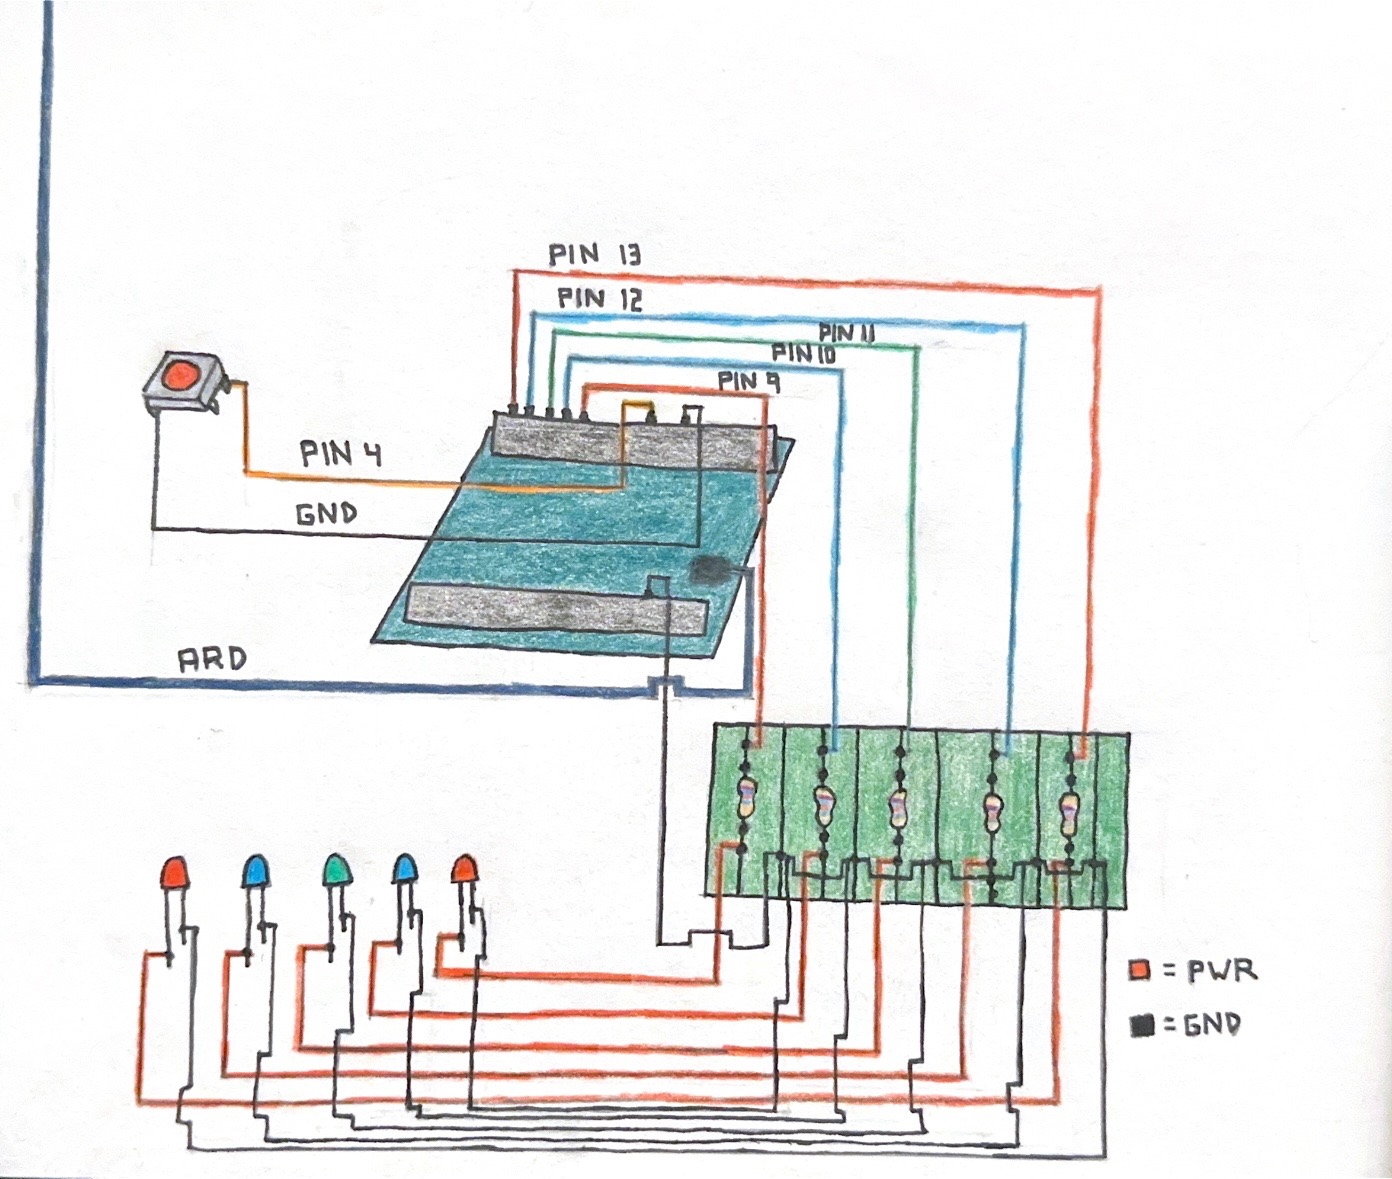 PIN 13
PIN 12
PIN 11
PIN 10
PIN 9
PIN 4
GND
ARD
= PWR
= GND